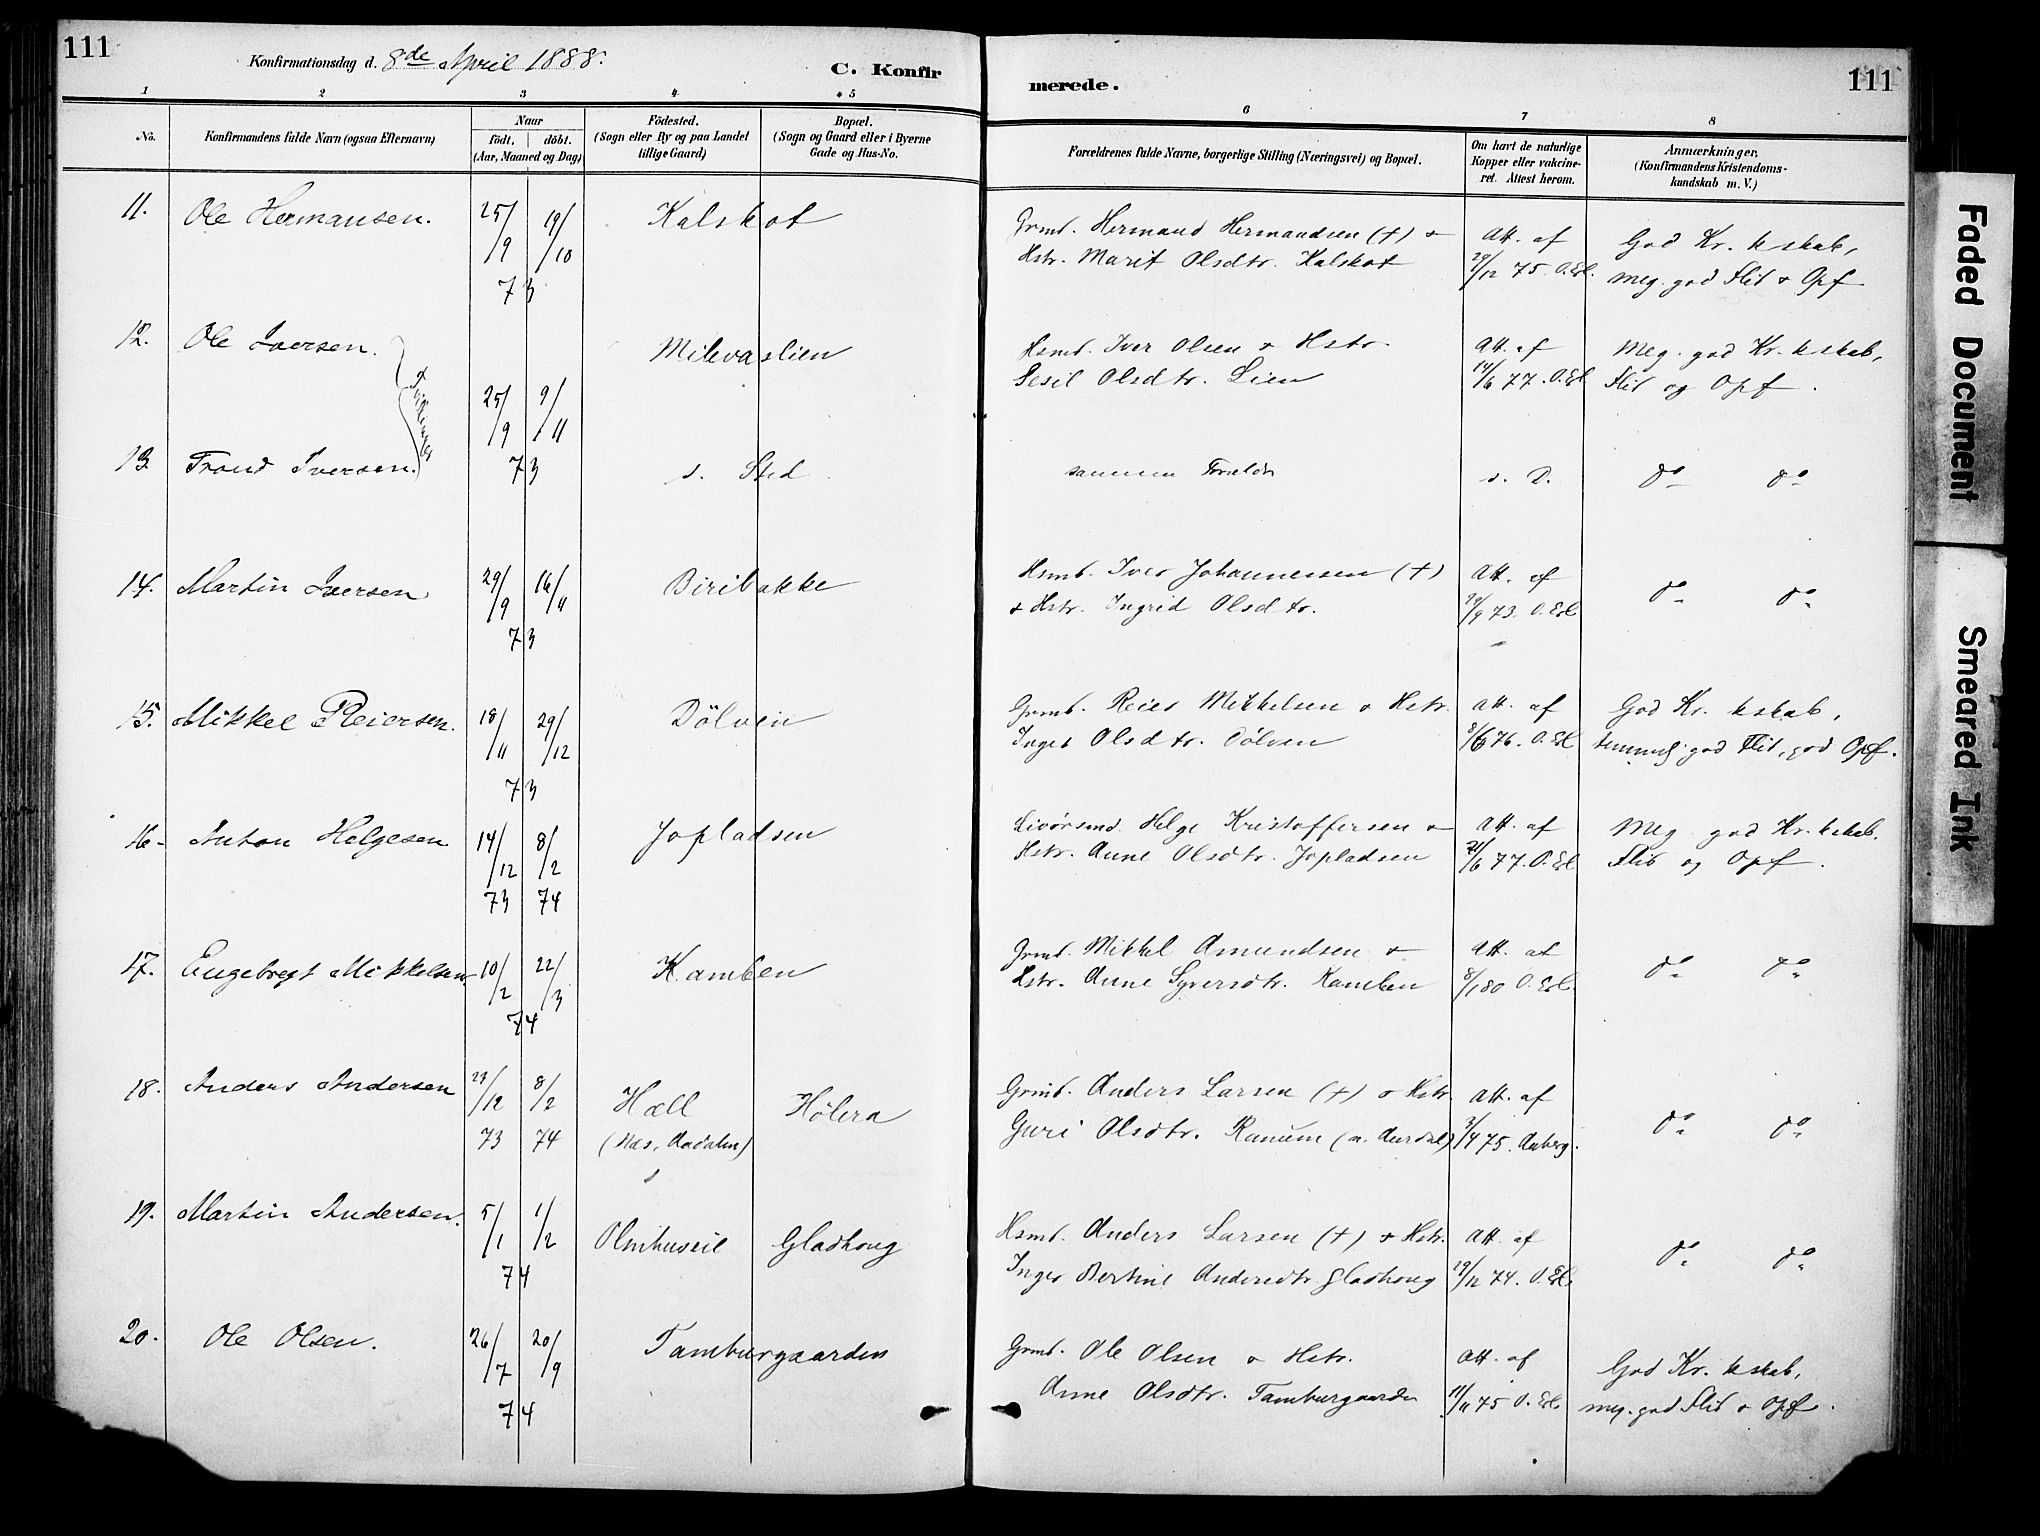 111
Konfirmationsdag d. 8de April 1888.
C. Konfir
merede.
111
1 2 3 4 5 6 7 8
No.
Konfirmandens fulde Navn (ogsaa Efternavn)
Naar
födt. döbt.
(Aar, Maaned og Dag)
Födested.
(Sogn eller By og paa Landet
tillige Gaard)
Bopæl.
(Sogn og Gaard eller i Byerne
Gade og Hus-No.
Forældrenes fulde Navne, borgerlige Stilling (Næringsvei) og Bopæl.
Om havt de naturlige
Kopper eller vakcine-
ret. Attest herom.
Anmærkninger,
(Konfirmandens Kristendoms-
kundskab m. V.)
11. Ole Hermansen. 25/9 19/10 73 Kalskot
Grmd. Hermand Hermandsen (+) &
Hstr. Marit Olsdtr. Kalskot
Att. af
29/12 75. O. Erl.
God Kr. kskab,
meg. god Flid & Opf
12. Ole Iversen. Milevaslien
Hsmd. Iver Olsen & Hstr.
Sesil Olsdtr. Lien
Att. af
14/6 77. O. Erl
Meg. god Kr. kskab,
Flid og Opf.
Tvillinger
25/9 9/11
13. Trond Iversen. 73 s. Sted
samme Forældre
s. D.
do do
14. Martin Iversen 29/9 16/11 73 Biribakke
Hsmd. Iver Johannessen (+)
& Hstr. Ingrid Olsdtr.
Att. af
29/9 73. O. Erl.
do do
15. Mikkel Reiersen. 18/11 29/12 73 Dölven
Grmd. Reier Mikkelsen & Hstr.
Inger Olsdtr. Dölven
Att. af
8/6 76. O. Erl
God Kr. kskab,
temmelig god Flid, god Opf.
16. Anton Helgesen 14/12 73 8/2 74 Jopladsen
Livörsmd. Helge Kristoffersen &
Hstr. Anne Olsdtr. Jopladsen
Att. af
21/6 77. O. Erl
Meg god Kr. kskab.
Flid og Opf.
17. Engebregt Mikkelsen 10/2 22/3 74 Kamben
Grmd. Mikkel Amundsen &
Hstr. Anne Syversdtr. Kamben
Att. af
8/1 80 O. Erl.
do do
18. Anders Andersen 29/12 73 8/2 74 Hæll Hølera
(Næs, Aadalen)
Grmd. Anders Larsen (+) & Hstr
Guri Olsdtr. Ranum (n. Aurdal)
Att. af
3/4 75. Aaberg.
do do
19. Martin Andersen. 5/1 1/2 74 Olmhuseie Gladhoug
Hsmd. Anders Larsen (+) & Hstr.
Inger Bertine Andersdtr Gladhoug
Att. af
19/12 74. O. Erl.
do do
20. Ole Olsen. 26/7 20/9 74 Tamburgaarden
Grmd. Ole Olsen & Hstr.
Anne Olsdtr. Tamburgaarden
Att. af
11/11 75 O. Erl.
God Kr. kskab,
meg. god Flid & Opf.
Faded Document
Smeared Ink